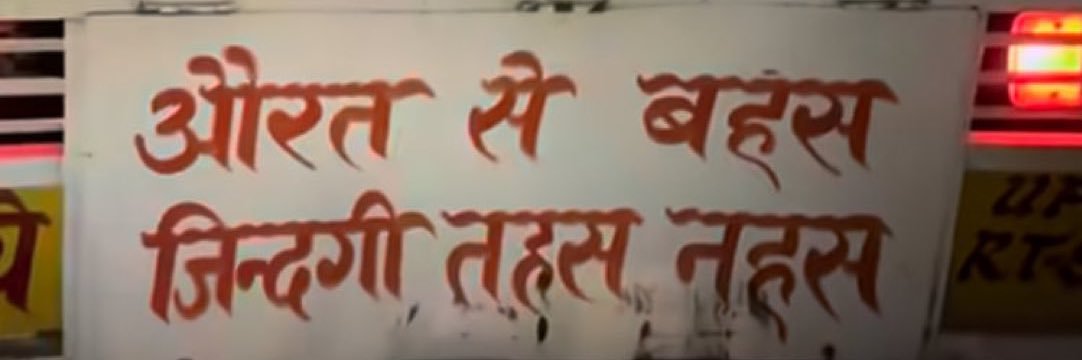 औरत से बहस
जिन्दगी तहस नहस
UP